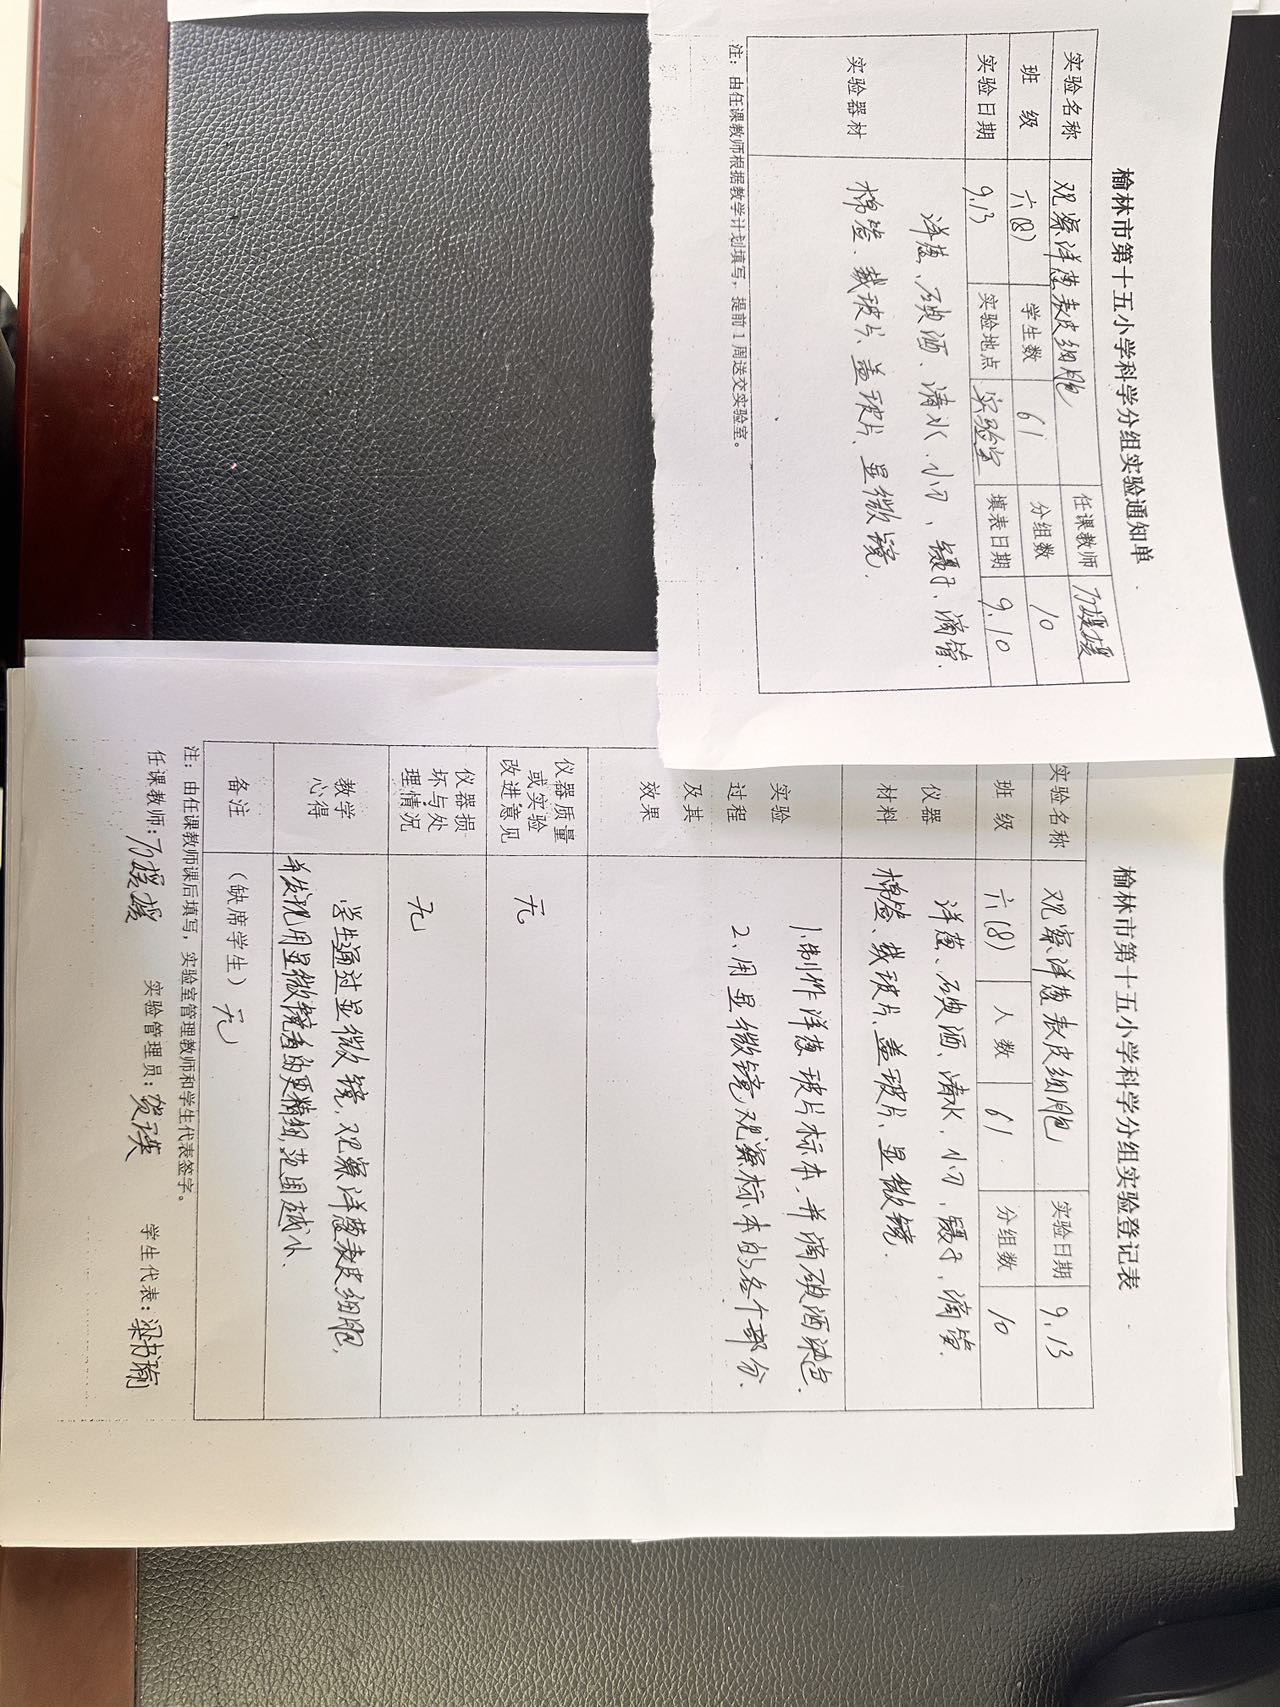 榆林市第十五小学科学分组实验通知单
实验名称 观察洋葱表皮细胞 任课教师
班 级 六(8) 学生数 61 分组数 10
实验日期 9.13 实验地点 实验室 填表日期 9.10
实验器材 洋葱、碘酒、清水、小刀、镊子、滴管、
棉签、载玻片、盖玻片、显微镜.
注：由任课教师根据教学计划填写，提前1周送交实验室。
榆林市第十五小学科学分组实验登记表
实验名称 观察洋葱表皮细胞 实验日期 9.13
班 级 六(8) 人 数 61 分组数 10
仪器 洋葱、碘酒、清水、小刀、镊子、滴管、
材料 棉签、载玻片、盖玻片、显微镜.
实验 1.制作洋葱玻片标本、并滴碘酒染色.
过程 2、用显微镜观察标本的各个部分.
及其
效果
仪器质量
或实验 无
改进意见
仪器损
坏与处 无
理情况
教学 学生通过显微镜，观察洋葱表皮细胞，
心得 并发现用显微镜看的更精细,范围越小.
备注 (缺席学生) 无
注：由任课教师课后填写，实验室管理教师和学生代表签字。
任课教师： 实验管理员：贺瑛 学生代表：梁书瑜